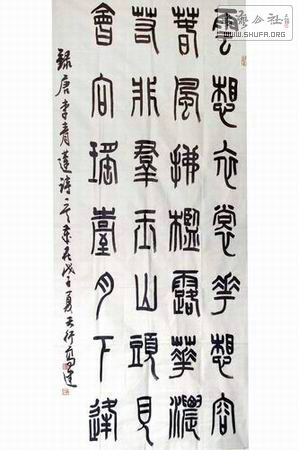 WWW.SHUFA.ORG
雲想衣裳花想容
春風拂檻露華濃
若非羣玉山頭見
會向瑤臺月下逢
錄唐李青蓮詩 戊子夏